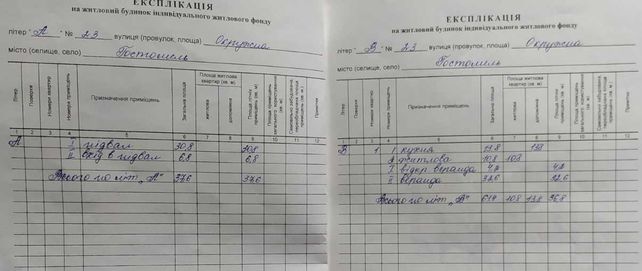 ЕКСПЛІКАЦІЯ
на житловий будинок індивідуального житлового фонду
літер "А" № 23 вулиця (провулок, площа) Окружна
місто (селище, село) Гостомель
Літер
Поверхи
Номери квартир
Номери приміщень
Призначення приміщень
Загальна площа
Площа житлова квартир (кв. м)
житлова
допоміжна
Примітки
1 2 3 4 5 6 7 8 9 10 11 12
А I підвал 30,8 30,8
II вхід в підвал 6,8 6,8
Всього по літ. "А" 37,6 37,6
ЕКСПЛІКАЦІЯ
на житловий будинок індивідуального житлового фонду
літер "В" № 23 вулиця (провулок, площа) Окружна
місто (селище, село) Гостомель
Літер
Поверхи
Номери квартир
Номери приміщень
Призначення приміщень
Загальна площа
Площа житлова квартир (кв. м)
житлова
допоміжна
Примітки
1 2 3 4 5 6 7 8 9 10 11 12
В 1 1 кухня 13,8 13,8
2 житлова 10,8 10,8
I відкр веранда 4,2 4,2
II веранда 32,6 32,6
Всього по літ. "В" 61,4 10,8 13,8 36,8